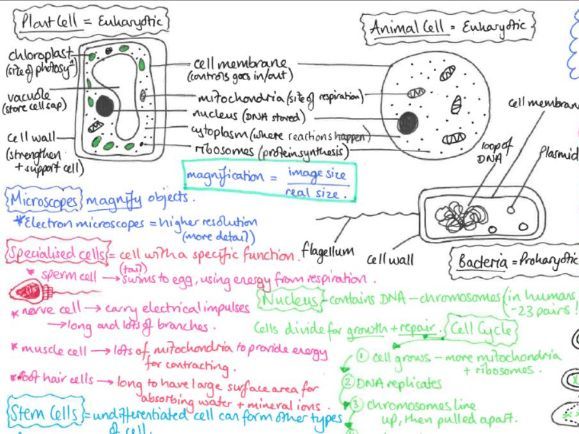 Plant Cell = Eukaryotic
Animal Cell = Eukaryotic
chloroplast
(site of photosyⁿ)
vacuole
(store cell sap)
cell wall
(strengthen
+ support cell)
cell membrane
(controls goes in/out)
mitochondria (site of respiration)
nucleus (DNA stored)
cytoplasm (where reactions happen)
ribosomes (protein synthesis)
magnification = image size
real size.
cell membrane
loop of
DNA
Plasmid
flagellum
cell wall
Bacteria = Prokaryotic
Microscopes magnify objects.
*Electron microscopes = higher resolution
(more detail)
Specialised cells = cell with a specific function.
* sperm cell → (tail) swims to egg, using energy from respiration.
* nerve cell → carry electrical impulses
→ long and lots of branches.
* muscle cell → lots of mitochondria to provide energy
for contracting.
* root hair cells → long to have large surface area for
absorbing water + mineral ions.
Stem Cells = undifferentiated cell can form other types
of cell.
Nucleus - contains DNA - chromosomes (in humans
- 23 pairs!
Cells divide for growth + repair. Cell Cycle
① cell grows - more mitochondria
+ ribosomes.
② DNA replicates
③ chromosomes line
up, then pulled apart.